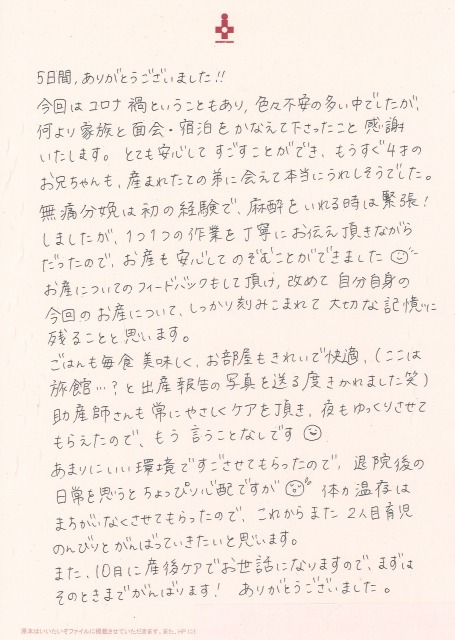 5日間,ありがとうございました!!
今回はコロナ禍ということもあり,色々不安の多い中でしたが,
何より家族と面会・宿泊をかなえて下さったこと感謝
いたします。とても安心してすごすことができ、もうすぐ4才の
お兄ちゃんも,産まれたての弟に会えて本当にうれしそうでした。
無痛分娩は初の経験で、麻酔をいれる時は緊張!
しましたが,1つ1つの作業を丁寧にお伝え頂きながら
だったので、お産も安心してのぞむことができました
お産についてのフィードバックもして頂け,改めて自分自身の
今回のお産について,しっかり刻みこまれて大切な記憶に
残ることと思います。
ごはんも毎食美味しく,お部屋もきれいで快適,(ここは
旅館…?と出産報告の写真を送る度きかれました笑)
助産師さんも常にやさしくケアを頂き,夜もゆっくりさせて
もらえたので、もう言うことなしです
あまりにいい環境ですごさせてもらったので,退院後の
日常を思うとちょっぴり心配ですが 体力温存は
まちがいなくさせてもらったので、これからまた2人目育児
のんびりとがんばっていきたいと思います。
また、10月に産後ケアでお世話になりますので、まずは
そのときまでがんばります! ありがとうございました。
原本はいいたいぞファイルに掲載させていただきます。また、HPに